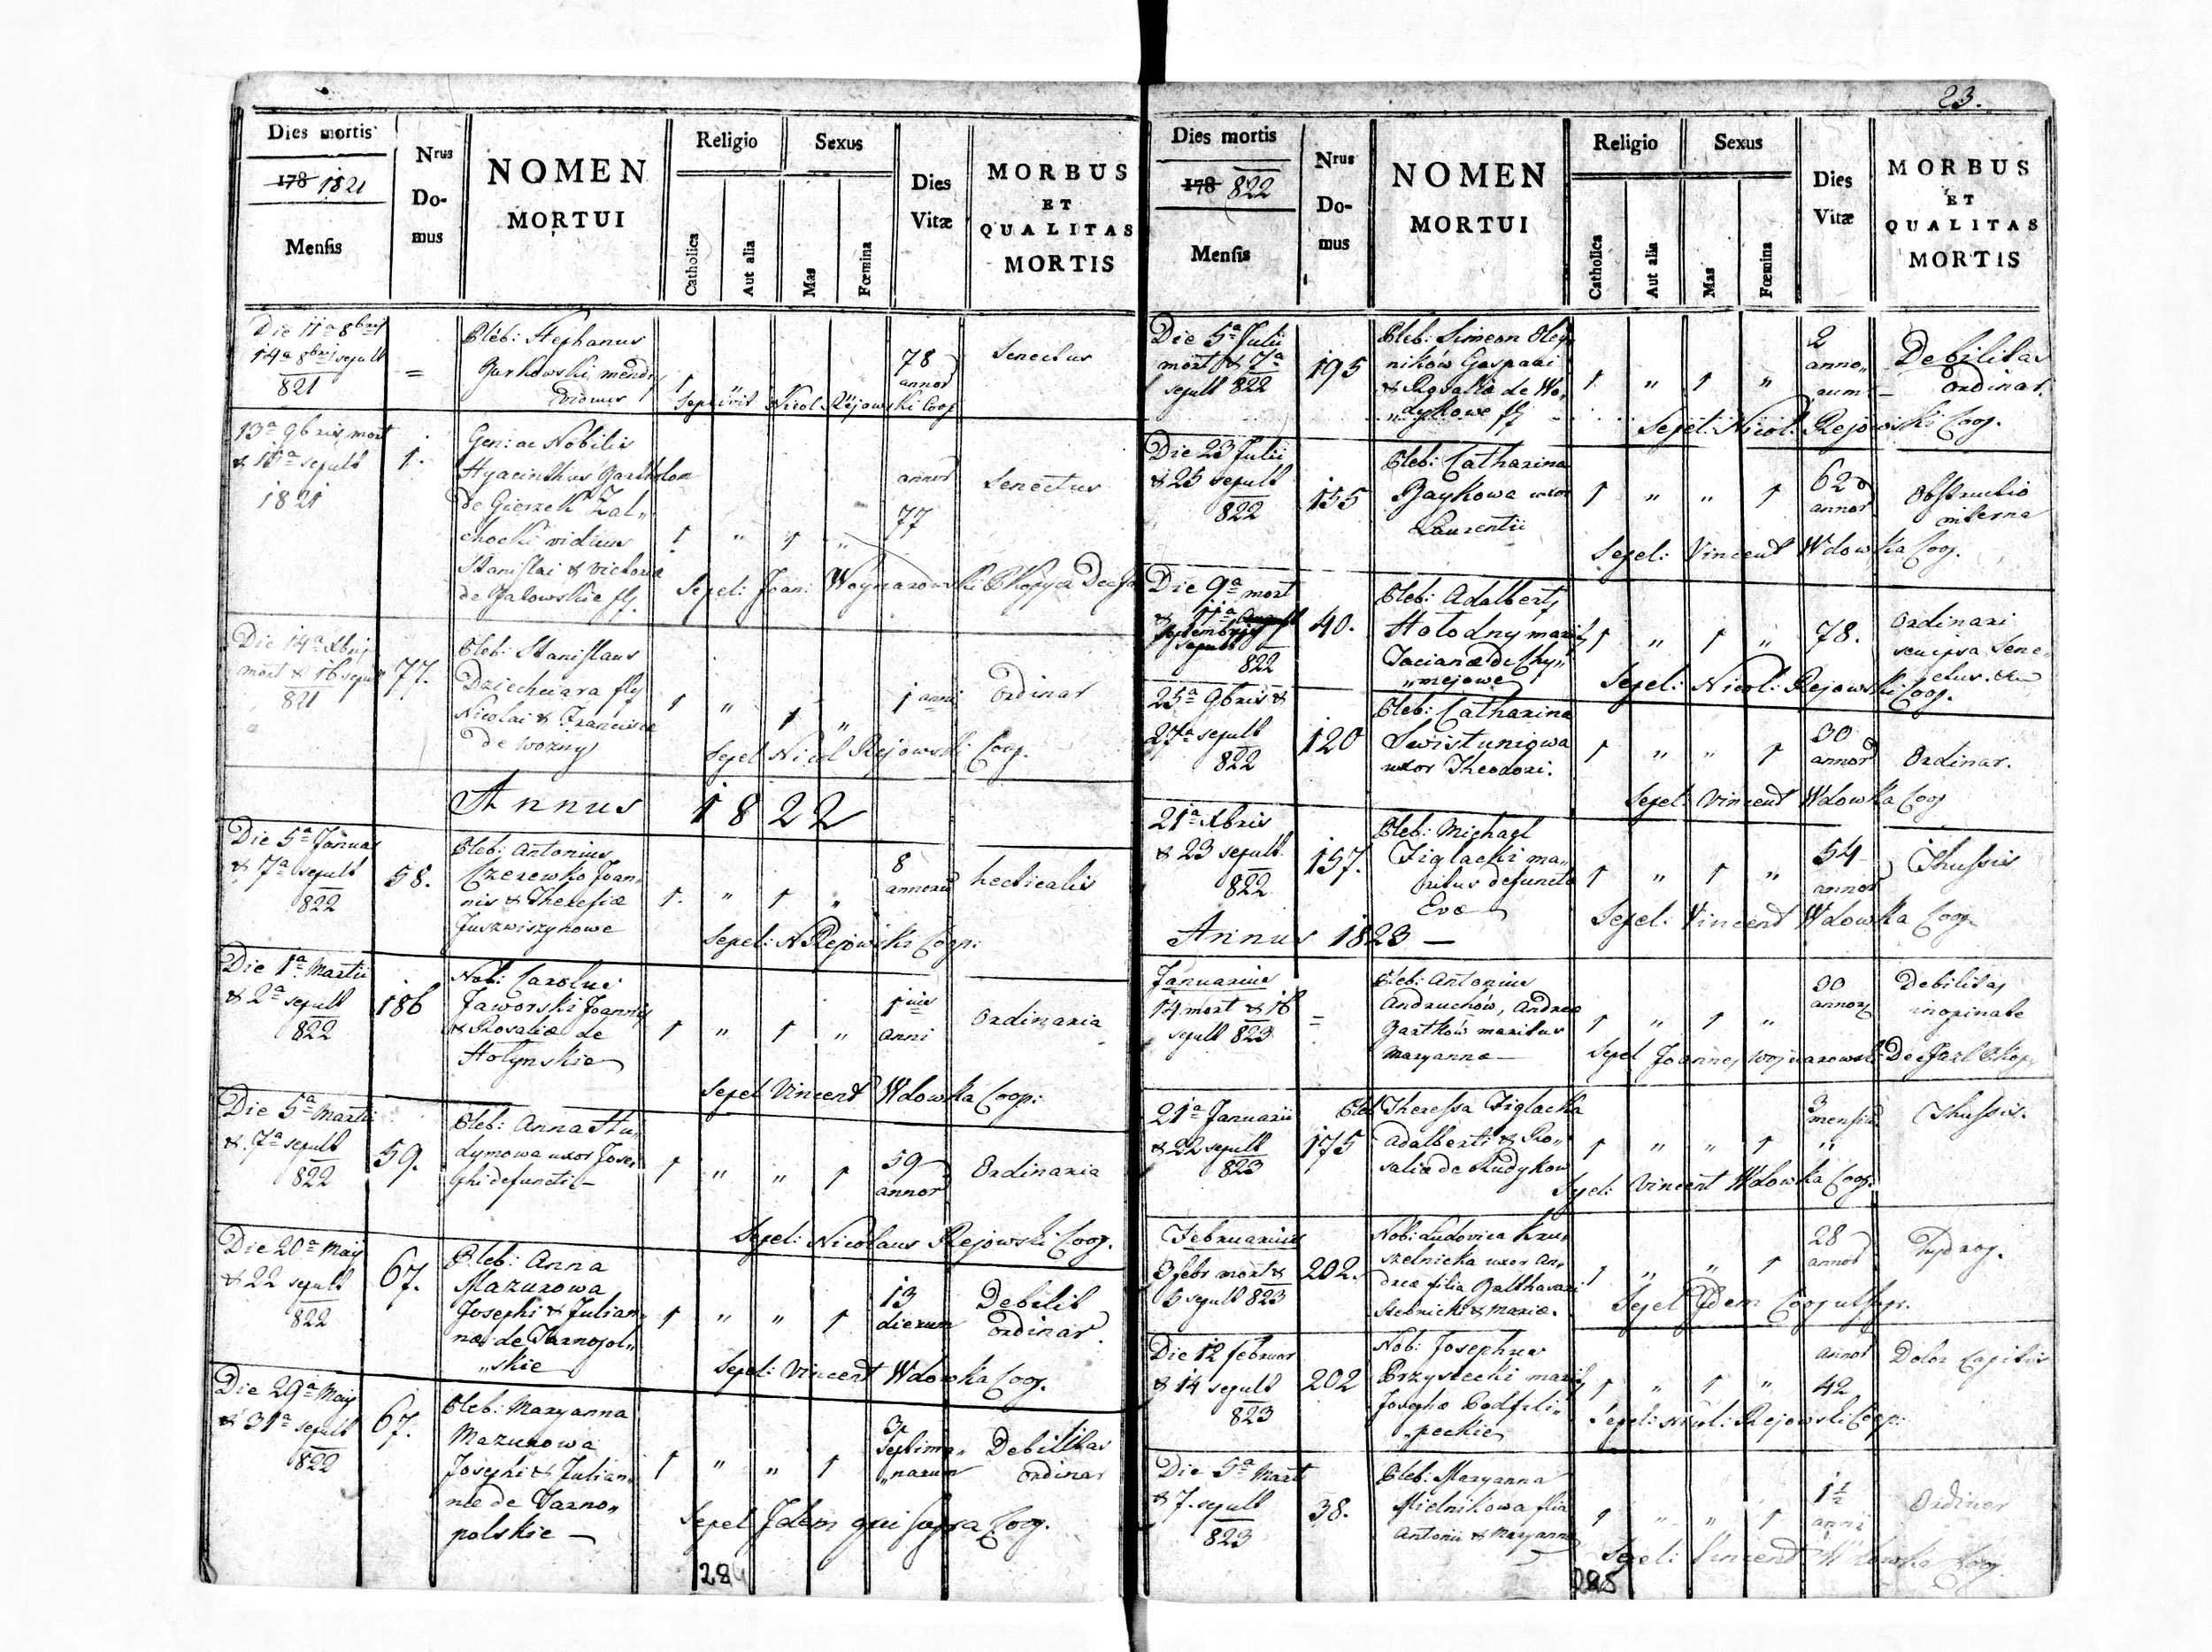 Dies mortis
178 1821
Mensis
Nrus
Do-
mus
NOMEN
MORTUI
Religio
Catholica
Aut alia
Sexus
Mas
Fœmina
Dies
Vitæ
MORBUS
ET
QUALITAS
MORTIS
Die 11a 8bris
14a 8bris sepult
821
=
Pleb: Stephanus
Barkowski, mendi
viduus
1 "
78
annor
Senectus
Sepelivit Nicol Rejowski Coop
13a 9bris mort
& 15a sepult
1821
1.
Gen: ac Nobilis
Hyacinthus Bartholom
de Gierzek Zal„
chocki viduus
Stanislai & Victoria
de Jalowskie fil.
1 " 1 "
annor
77
Senectus
Sepel: Joan: Woynarowski
Die 14a Xbris
mort & 16 sepult
821
77.
Pleb: Stanislaus
Dziechciara fil
Nicolai & Francisca
de Wozny
1 " 1 "
1 anni
Ordinar
Sepel Nicol Rejowski Coop.
Annus 1822
Die 5a Januar
& 7a sepult
822
58.
Pleb: Antonius
Czerewko Joan„
nis & Theresiæ
Juszwiszynowe
1. " 1 "
8
annorum
hecticalis
Sepel: N Rejowski Coop:
Die 1a Martii
& 2a sepult
822
186
Nob: Carolus
Jaworski Joannis
& Rosaliæ de
Holynskie
1 " 1 "
1nius
anni
Ordinaria
Sepel Vincent Wdowka Coop:
Die 5a Martii
& 7a sepult
822
59.
Pleb: Anna Stu„
dymowa uxor Jose„
phi defuncti
1 " " 1
59
annor
Ordinaria
Sepel: Nicolaus Rejowski Coop.
Die 20a Maij
& 22 sepult
822
67.
Pleb: Anna
Mazurowa
Josephi & Julian„
næ de Tarnopol„
„skie
1 " " 1
13
dierum
Debilit
ordinar.
Sepel: Vincent Wdowka Coop.
Die 29a Maij
& 31a sepult
822
67.
Pleb: Maryanna
Mazurowa
Josephi & Julian„
næ de Tarno„
polskie
1 " " 1
3
septima„
„narum
Debilitas
ordinar
Sepel Idem qui supra Coop.
284
23.
Dies mortis
178 822
Mensis
Nrus
Do-
mus
NOMEN
MORTUI
Religio
Catholica
Aut alia
Sexus
Mas
Fœmina
Dies
Vitæ
MORBUS
ET
QUALITAS
MORTIS
Die 5a Julii
mort & 7a
sepult 822
195
Pleb: Simeon Oley„
ników Gaspari
& Rosalia de Wo„
„dykowe fil
1 " 1 "
2
anno„
rum
Debilitas
ordinar.
Sepel: Nicol: Rejowski Coop.
Die 23 Julii
& 25 sepult
822
155
Pleb: Catharina
Baykowa uxor
Laurentii
1 " " 1
62
annor
Obstructio
interna
Sepel: Vincent Wdowka Coop.
Die 9a mort
& 11a
Septembris
sepult
822
40.
Pleb: Adalbert
Holodny marit
Tacianæ de Chy„
„mejowe
1 " 1 "
78.
Ordinari
seu ipsa Sene„
ctus
Sepel: Nicol: Rejowski Coop.
25a 9bris &
27a sepult
822
120
Pleb: Catharina
Swistuniowa
uxor Theodori.
1 " " 1
30
annor
Ordinar.
Sepel: Vincent Wdowka Coop
21a Xbris
& 23 sepult
822
157.
Pleb: Michael
Figlacki ma„
ritus defuncta
Evæ
1 " 1 "
54
annor
Thussis
Sepel: Vincent Wdowka Coop.
Annus 1823
Januarius
14 mort & 16
sepult 823
=
Pleb: Antonius
Andruchów, Andrea
Bartków maritus
Maryannæ
1 " 1 "
30
annor
Debilitas
inopinate
Sepel Joannes Wojnarowski
21a Januarii
& 22 sepult
823
175
Pleb Theressa Figlacka
Adalberti & Ro„
salia de Rudykow
1 " " 1
3
mensium
"
Thussis.
Sepel: Vincent Wdowka Coop.
Februarius
3 febr mort &
5 sepult 823
202.
Nob: Ludovica Kru„
szelnicka uxor An„
dreæ filia Balthasari
Stebnicki & Mariæ.
1 " " 1
28
annor
Hydrop.
Sepel Idem Coop ut supr.
Die 12 februar
& 14 sepult
823
202
Nob: Josephus
Przystecki marit
Josepha Podfili„
„peckie
1 " 1 "
annor
42
Dolor Capitis
Sepel: Nicol: Rejowski Coop:
Die 5a Marti
& 7. sepult
823
38.
Pleb: Maryanna
Mielnikowa filia
Antonii & Maryanna
1 " " 1
1½
anni
Ordinar
Sepel: Vincent Wdowka Coop.
285